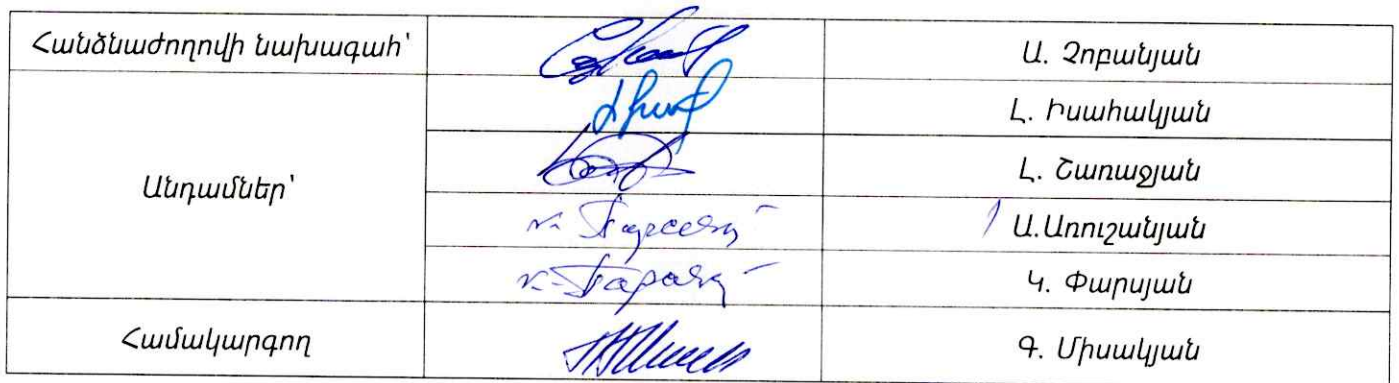 Հանձնաժողովի նախագահ՝
Ա. Չոբանյան
Լ. Իսահակյան
Անդամներ՝
Լ. Շառաջյան
Ա.Առուշանյան
Կ. Փարսյան
Համակարգող
Գ. Միսակյան